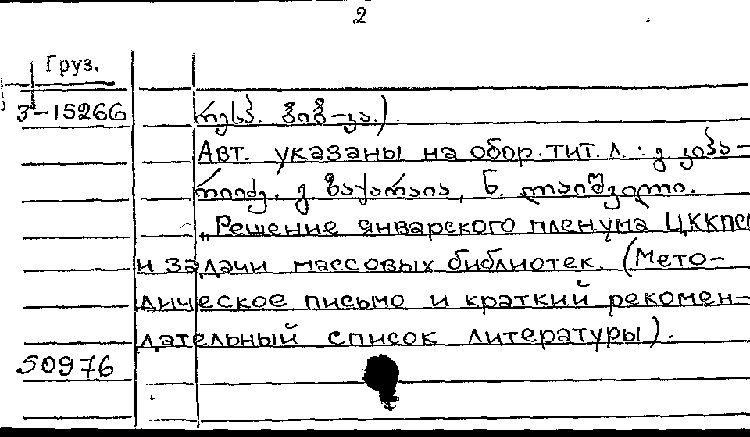 2
Груз.
3-15266
რესპ. ბიბ-კა.)
Авт. указаны на обор. тит. л. : გ.
გ. ზაქარაია, ნ.
„Решение январского пленума ЦККПСС
и задачи массовых библиотек. (Мето-
дическое письмо и краткий рекомен-
дательный список литературы).
50976